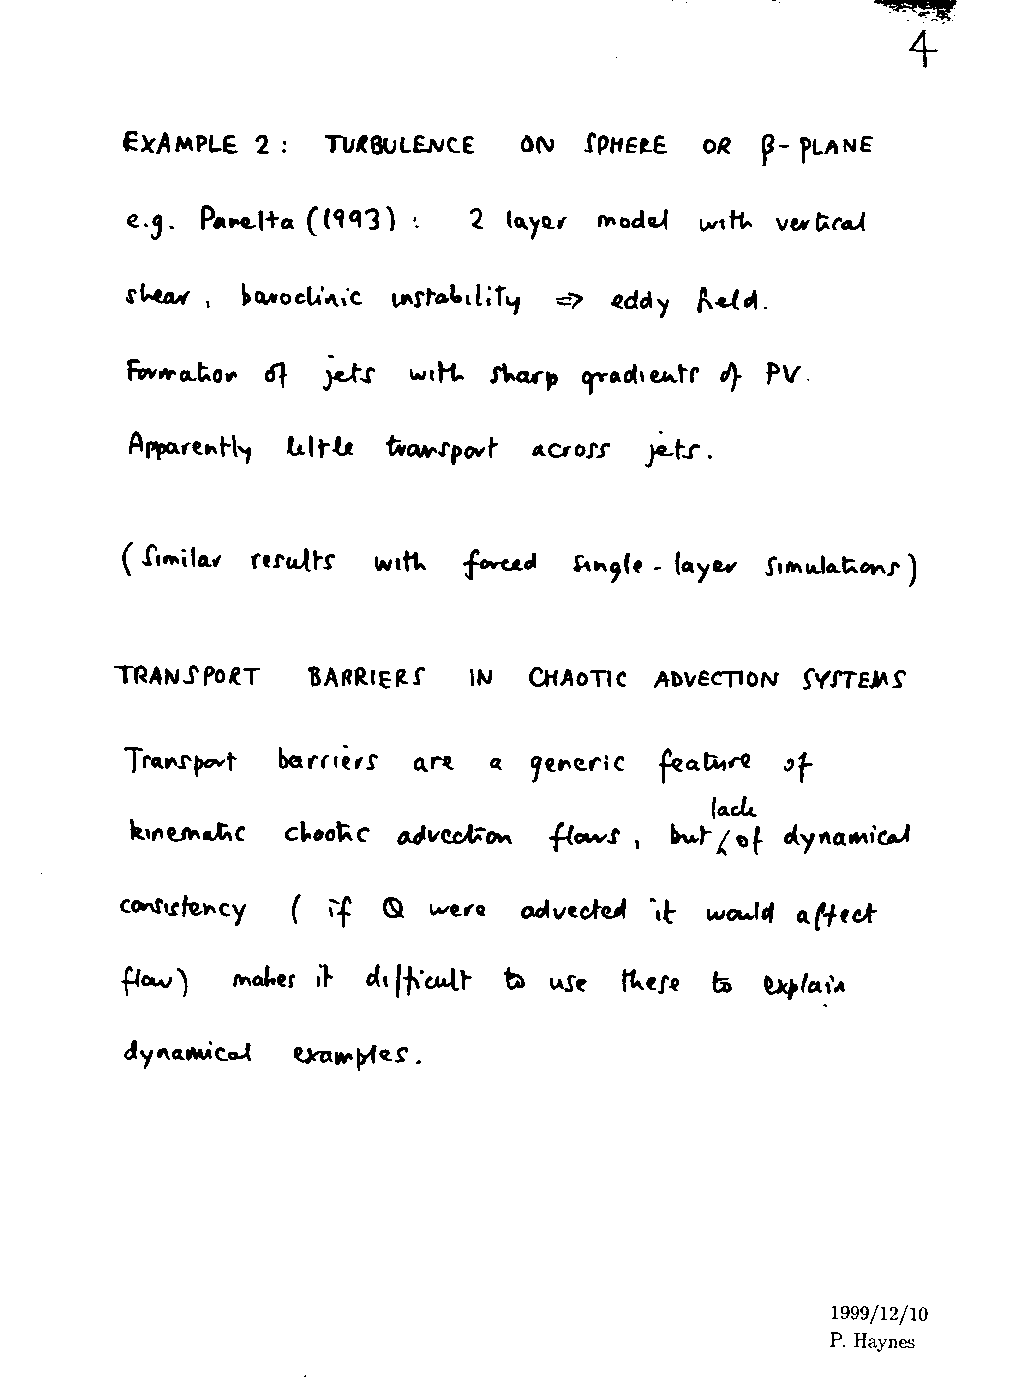 4
EXAMPLE 2 : TURBULENCE ON SPHERE OR β-PLANE
e.g. Panelta (1993) : 2 layer model with vertical
shear, baroclinic instability ⇒ eddy field.
Formation of jets with sharp gradients of PV.
Apparently little transport across jets.
(Similar results with forced single-layer simulations)
TRANSPORT BARRIERS IN CHAOTIC ADVECTION SYSTEMS
Transport barriers are a generic feature of
lack
kinematic chaotic advection flows, but of dynamical
consistency (if Q were advected it would affect
flow) makes it difficult to use these to explain
dynamical examples.
1999/12/10
P. Haynes